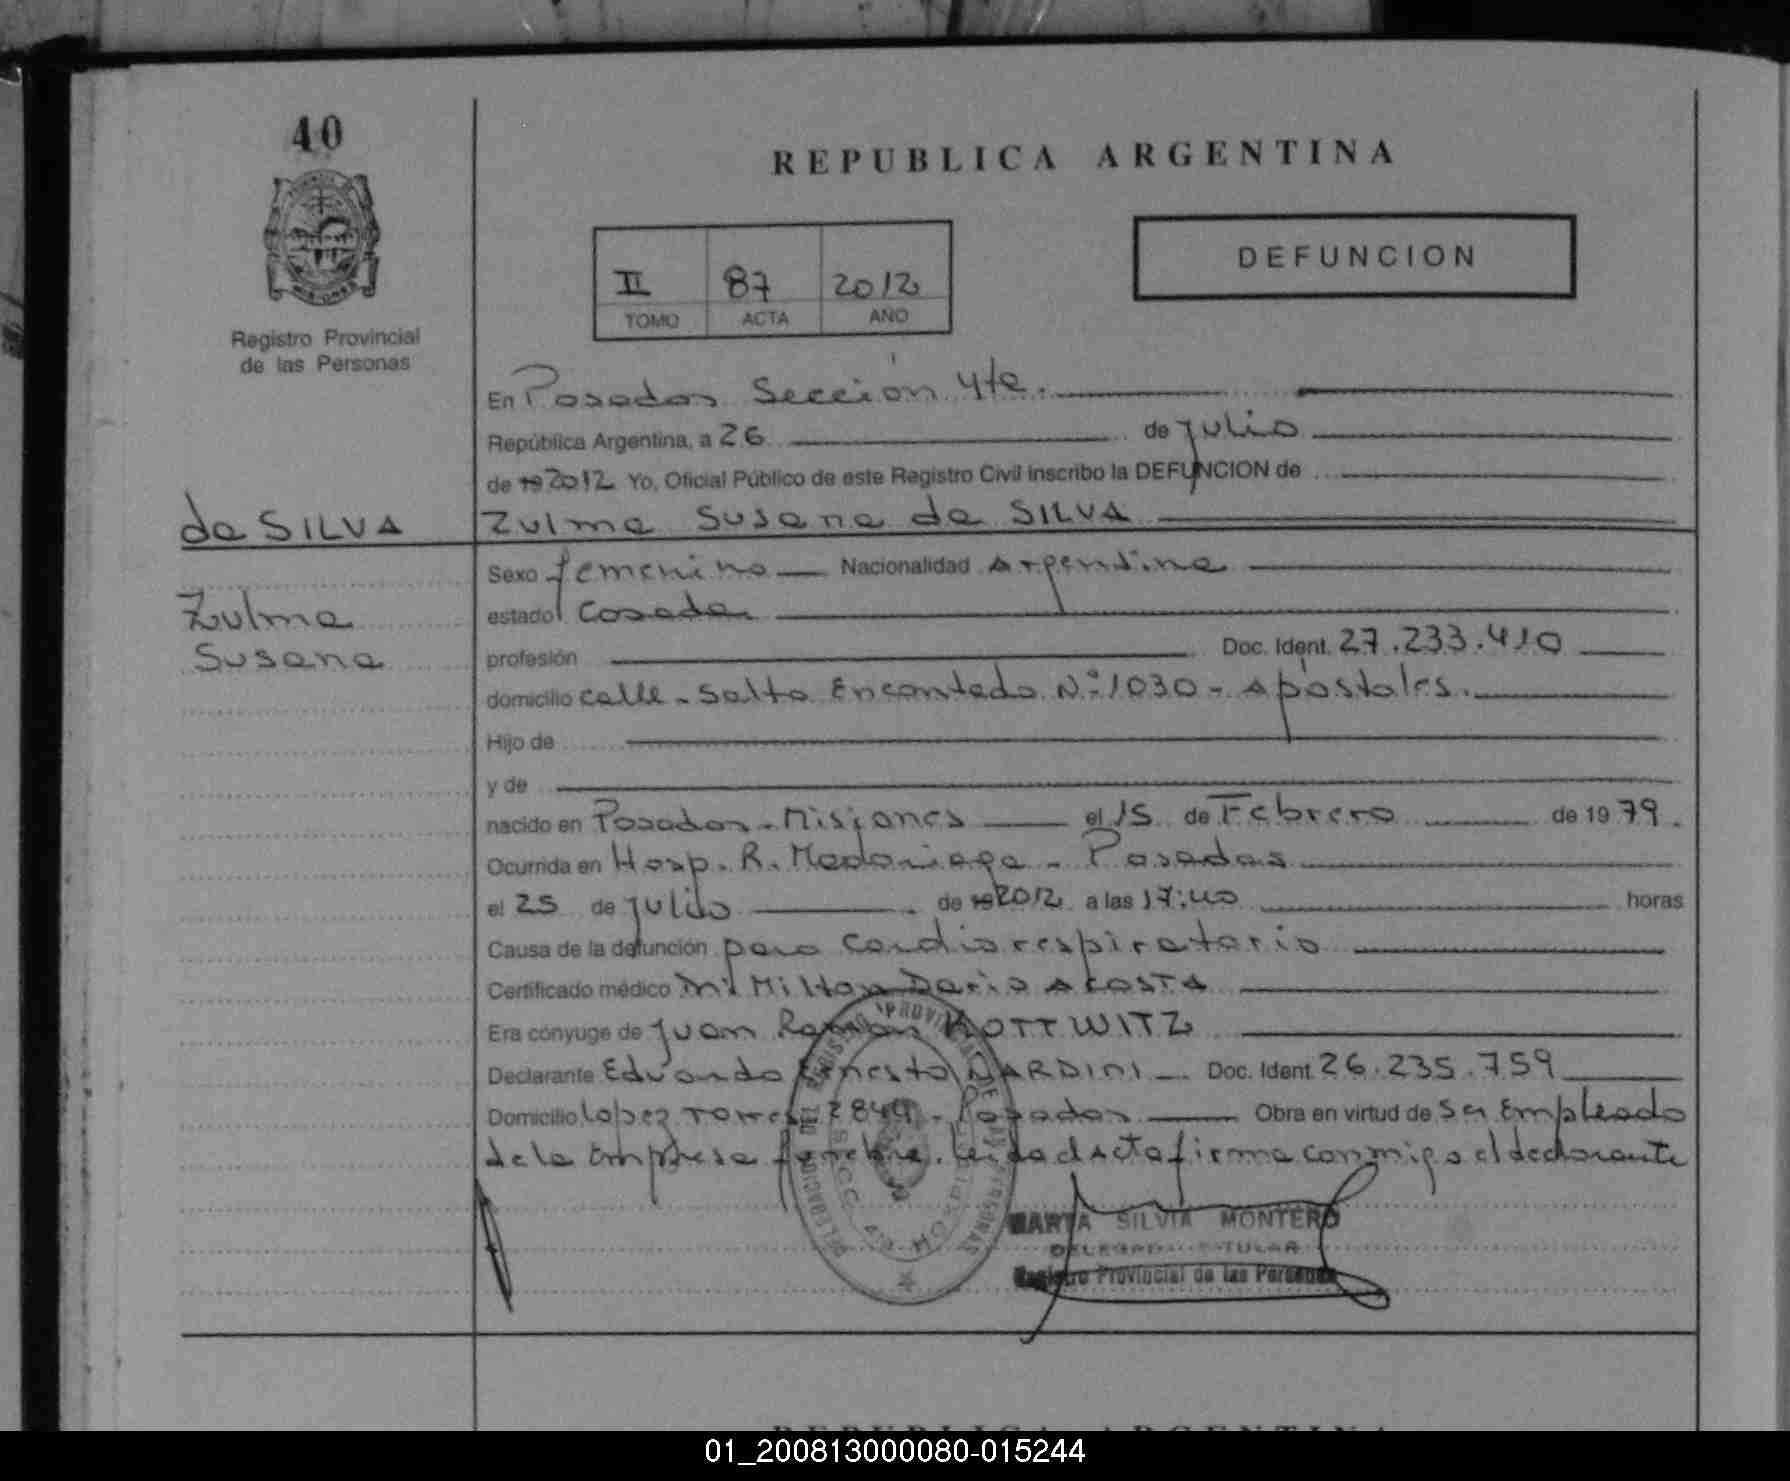 40
REPUBLICA ARGENTINA
DEFUNCION
II 87 2012
TOMO ACTA AÑO
Registro Provincial
de las Personas
En Posadas Sección 4ta.
República Argentina, a 26 de julio
de 19 2012 Yo, Oficial Público de este Registro Civil inscribo la DEFUNCION de
da SILVA
Zulma Susana da SILVA
Zulma
Susana
Sexo femenino Nacionalidad Argentina
estado casada
profesión Doc. Ident. 27.233.410
domicilio calle - Salto Encantado N° 1030 - Apóstoles.
Hijo de
y de
nacido en Posadas - Misiones el 15 de Febrero de 1979.
Ocurrida en Hosp. R. Madariaga - Posadas
el 25 de julio de 19 2012 a las 17:40 horas
Causa de la defunción paro cardiorespiratorio
Certificado médico Dr. Milton Dario ACOSTA
Era cónyuge de Juan Ramon KOTTWITZ
Declarante Eduardo Ernesto NARDINI Doc. Ident. 26.235.759
Domicilio Lopez Torres 2849 - Posadas Obra en virtud de Ser Empleado
de la Empresa fúnebre. Leida el Acta firma conmigo el declarante
REGISTRO PROVINCIAL DE LAS PERSONAS
DELEGACION
SECC. 4ta
MARTA SILVIA MONTERO
DELEGADA TITULAR
Registro Provincial de las Personas
REPUBLICA ARGENTINA
01_200813000080-015244